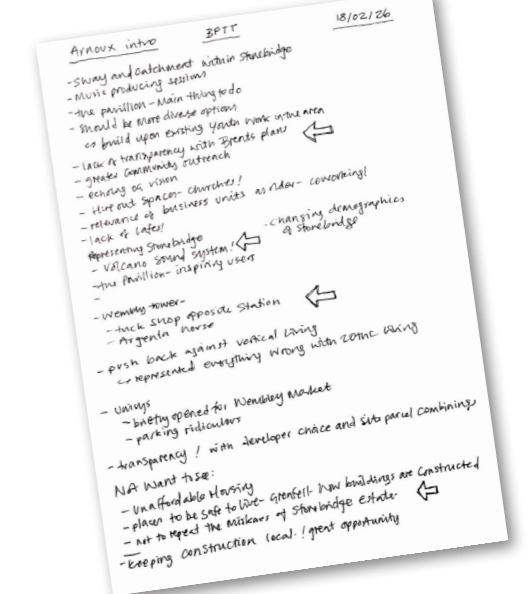 Arnoux intro BPTT 18/02/26
- Sway and Catchment within Stonebridge
- Music producing sessions
- the pavillion - Main thing to do
- Should be more diverse options
↳ build upon existing youth work in the area
- lack of transparency with Brents plans
- greater Community outreach
- echoing og vision
- Hire out spaces - churches!
- relevance of business units as rider - coworking!
- lack of Cafes!
Representing Stonebridge
- Volcano Sound System!
- changing demographics of Stonebridge
- the Pavillion - inspiring users
-
- Wembly tower -
- tuck shop opposite Station
- Argenta horse
- push back against vertical living
↳ represented everything wrong with 20thC living
- Unisys
- briefly opened for Wembley Market
- parking ridiculous
- transparency! with developer choice and site parcel combinings
NA Want to see:
- Unaffordable Housing
- places to be safe to live - Grenfell - How buildings are constructed
- not to repeat the mistakes of Stonebridge estate -
- Keeping construction local! great opportunity